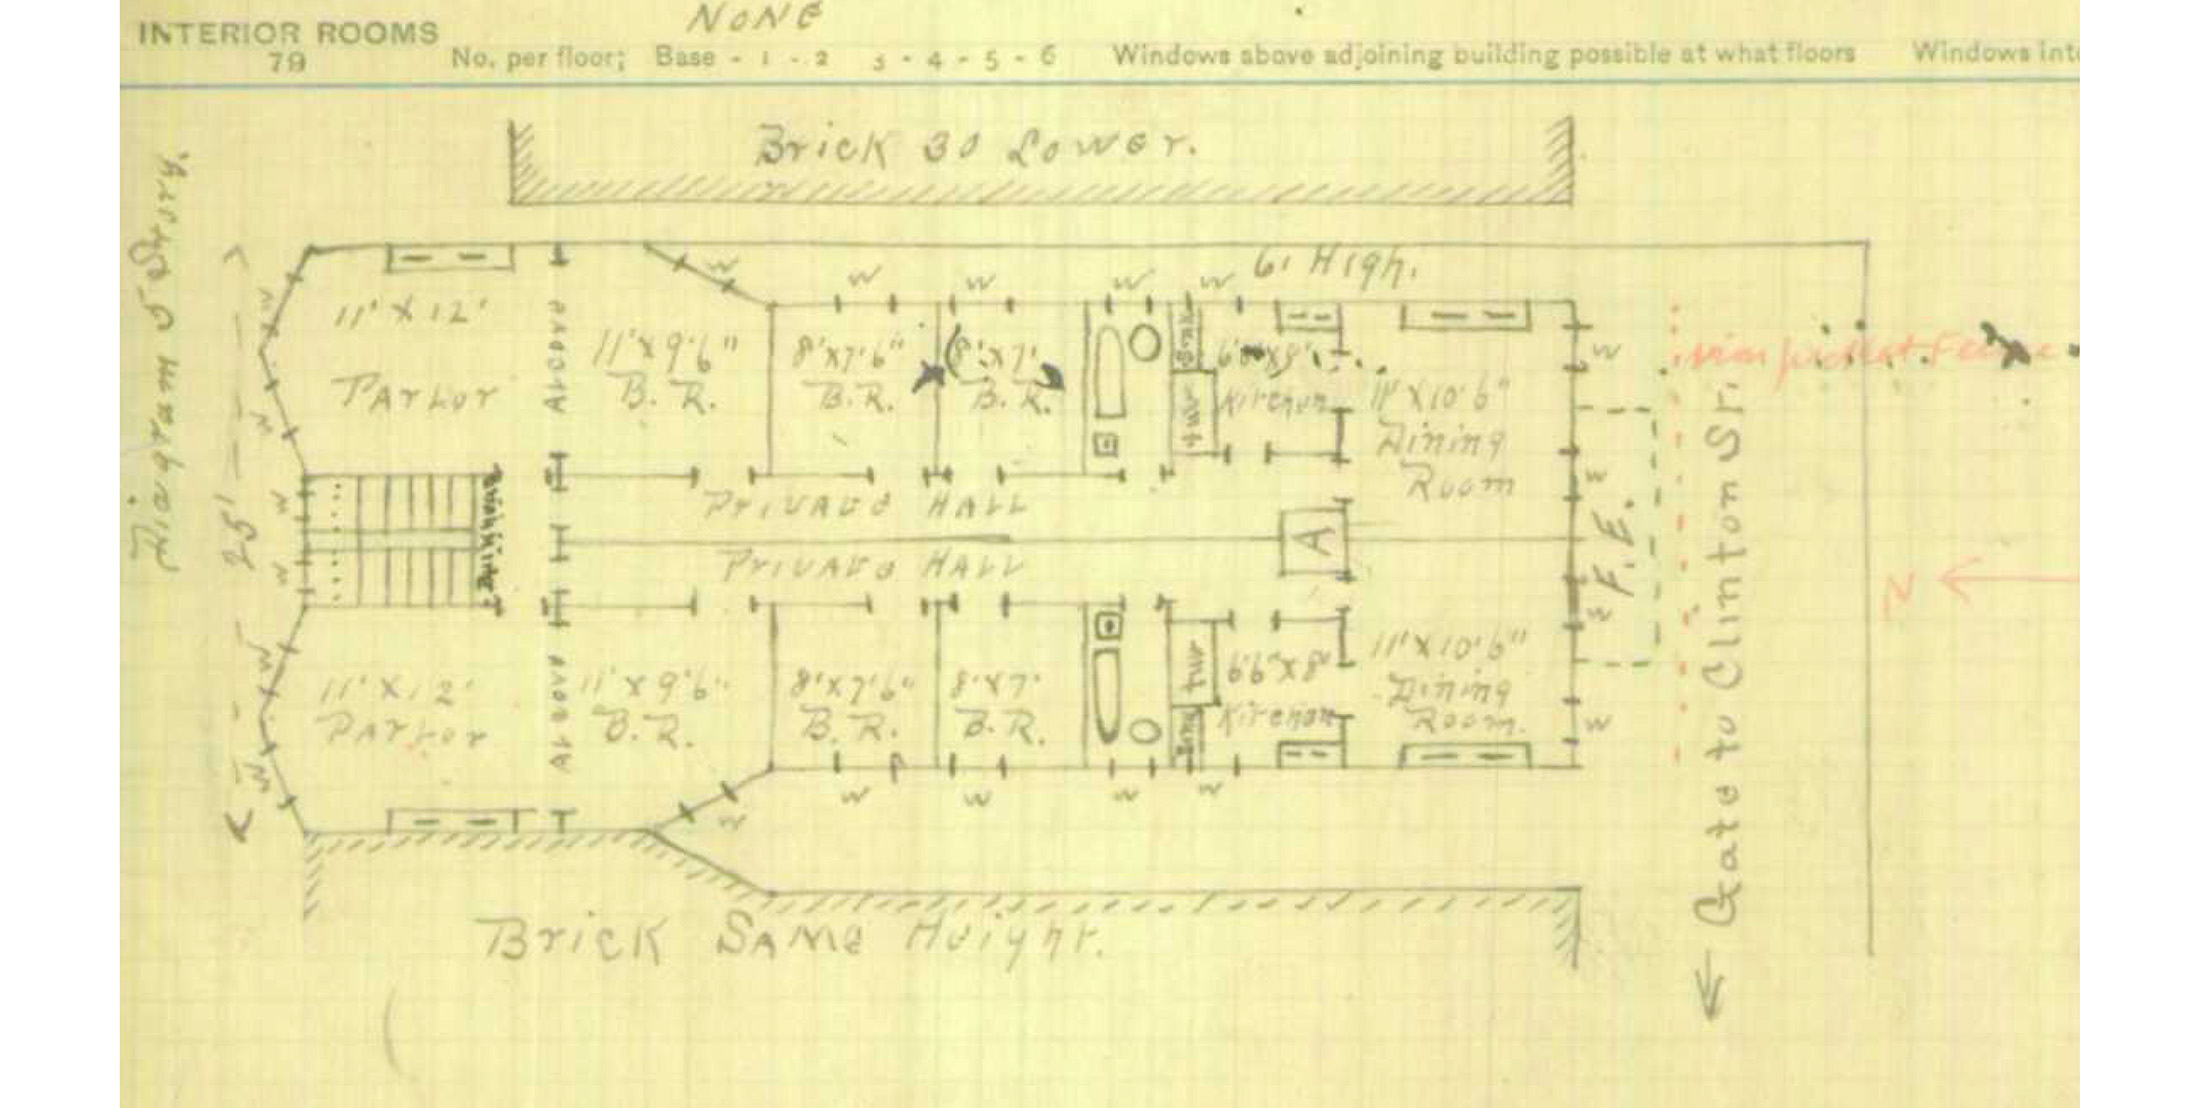 NONE
INTERIOR ROOMS
79
No. per floor; Base - 1 - 2 3 - 4 - 5 - 6 Windows above adjoining building possible at what floors Windows int
Brick 30 Lower.
6' High.
W
W
W
W
W
11' X 12'
Parlor
Alcove
11' X 9'6"
B. R.
8' X 7'6"
B. R.
8' X 7'
B. R.
Kitchen
11' X 10'6"
Dining
Room
W
W
Private Hall
Private Hall
A
F.E.
Gate to Clinton St.
N
11' X 12'
Parlor
Alcove
11' X 9'6"
B. R.
8' X 7'6"
B. R.
8' X 7'
B. R.
tur
6'6" X 8'
Kitchen
11' X 10'6"
Dining
Room.
W
W
W
W
W
W
W
Brick Same Height.